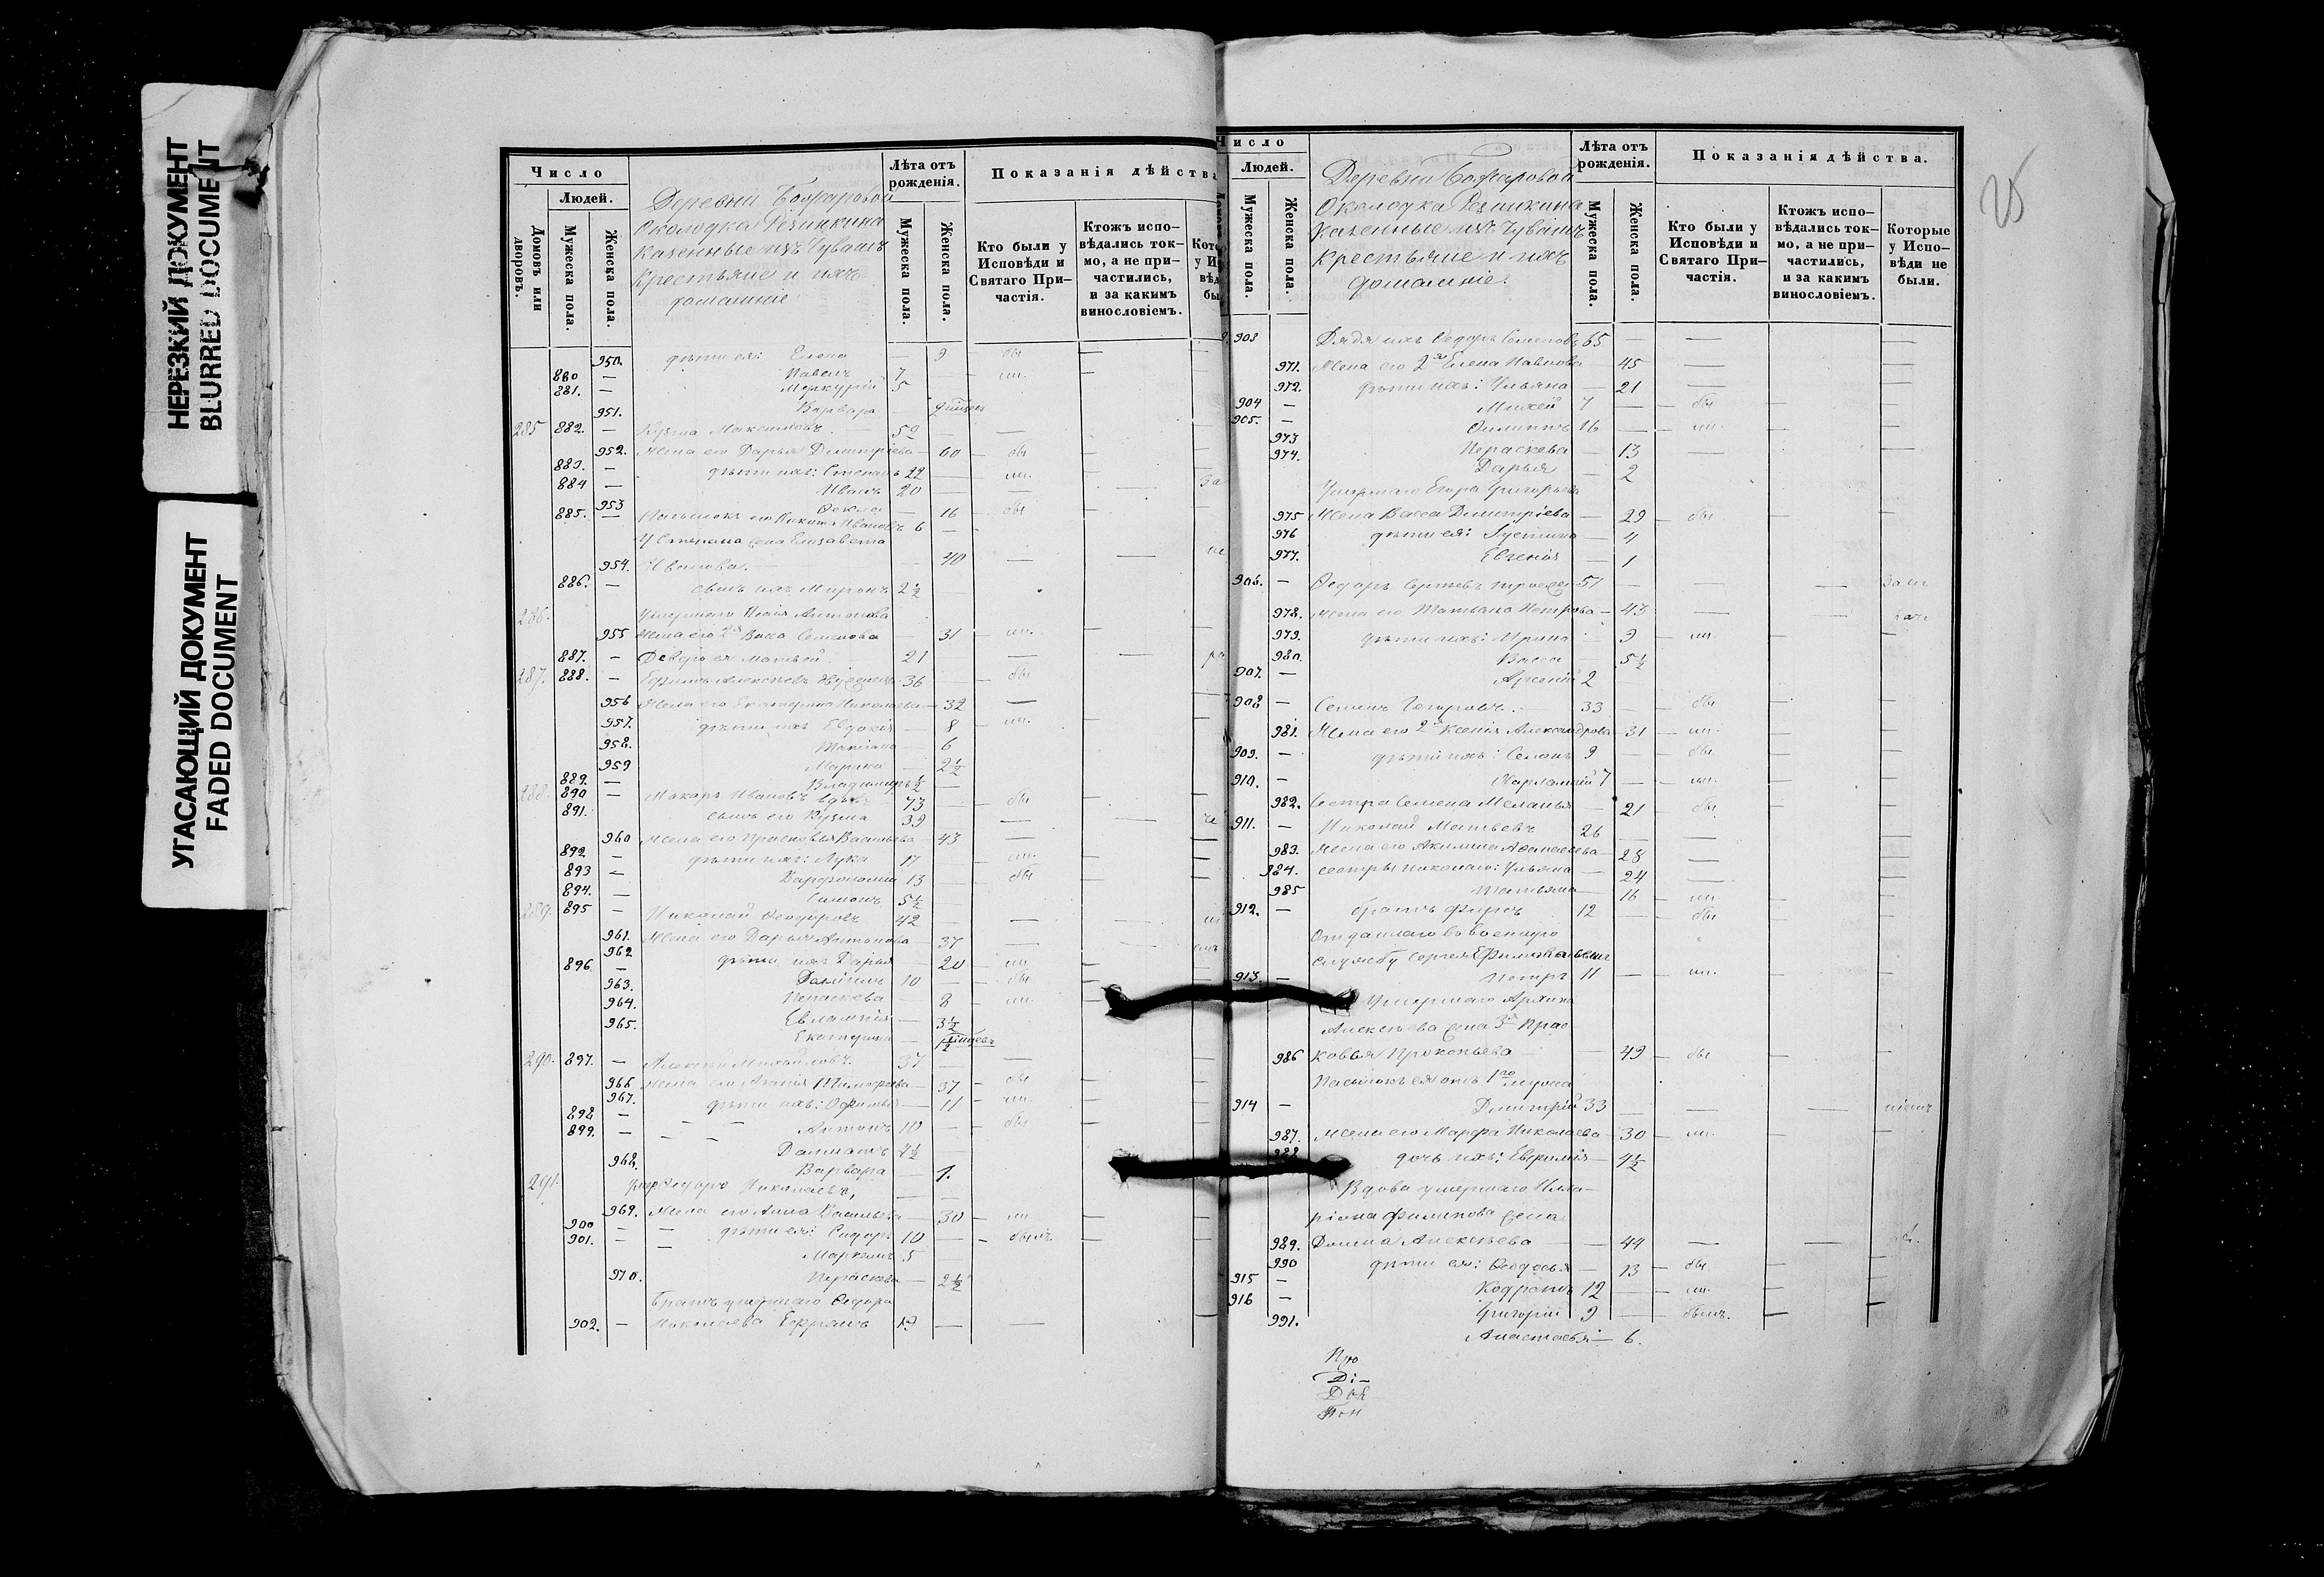 НЕРЕЗКИЙ ДОКУМЕНТ
BLURRED DOCUMENT
УГАСАЮЩИЙ ДОКУМЕНТ
FADED DOCUMENT
Число
Людей.
Домовъ или дворовъ.
Мужеска пола.
Женска пола.
Деревни
Околодка
Казенные изъ Чувашъ
Крестьяне и ихъ
домашніе
Лѣта отъ рожденія.
Мужеска пола.
Женска пола.
Показанія дѣйства
Кто были у Исповѣди и Святаго Причастія.
Ктожъ исповѣдались токмо, а не причастились, и за какимъ винословіемъ.
950. дѣти ея: Елена — 9 бы —
880 — Павелъ 7 — ии. —
881. — Меркурій 5
951. Варвара —
285 882. — Кузма Максимовъ. — 59 — —
952. Жена его Дарья Димитріева — 60 — бы —
883. — дѣти ихъ: Степанъ 22 — ии. —
884 — Иванъ 20 — — —
953 Ѳекла — 16 — бы —
885. — Никита Ивановъ 6 —
У Степана жена Елизавета
954. Иванова. — 40 — —
886. — сынъ ихъ Миронъ 2½ —
286. Умершаго Антонова
955 Жена его 2я Васса Семенова 31 — ии. —
887. — Матвей — 21 — —
287. 888. — Ефимъ Алексѣевъ 36 — бы —
956 Жена его Екатерина Николаева — 32 — —
957. дѣти ихъ Евдокія — 8 — ии. —
958. Татіана 6
959 Марина — 2½
889. — Владимиръ ½ —
288. 890 — Макаръ Ивановъ вдовъ 73 — бы —
891. сынъ его Кузма 39 — — —
960 Жена его Прасковья Васильева — 43 —
892 — дѣти ихъ: Лука 17 — ии. —
893 — Варфоломей 13 — бы —
894. — Симонъ 5½ —
289. 895 — Николай Ѳеодоровъ 42 — — —
961. Жена его Дарья Антонова — 37 — —
962 дѣти ихъ Дарья — 20 — ии —
896 — Даніилъ 10 — бы —
963. Параскева — 8 — ии. —
964. Евлампія — 3½
965. Екатерина — ½
290. 897. — Алексѣй Михайловъ. 37 — —
966 Жена его Агапія Тимофеева — 37 — бы —
967. дѣти ихъ: Офимья — 11 — ии. —
898 — Антонъ 10 — бы —
899. — Далматъ 4½ —
968. Варвара — 1.
291. Ѳедоръ Николаевъ, — —
969. Жена его Анна Васильева — 30 — ии —
900 — дѣти ея: Сидоръ 10 — былъ. —
901. — Маркелъ 5 —
970. Параскева — 2½
Братъ умершаго Ѳедора
902. — Николаева Ефремъ 19 — —
25
Число
Людей.
Мужеска пола.
Женска пола.
Деревни
Околодка
Казенные изъ Чувашъ
Крестьяне и ихъ
домашніе.
Лѣта отъ рожденія.
Мужеска пола.
Женска пола.
Показанія дѣйства.
Кто были у Исповѣди и Святаго Причастія.
Ктожъ исповѣдались токмо, а не причастились, и за какимъ винословіемъ.
Которые у Исповѣди не были.
903 Дядя ихъ Ѳедоръ Семеновъ 65 — — — —
971. Жена его 2я Елена Павлова — 45 — — —
972. дѣти ихъ: Ульяна — 21 — — —
904 — Михей 7 — бы — —
905. — Филиппъ 16 — ии. — —
973 Параскева — 13 — — —
974. Дарья — 2
Умершаго Егора Григорьева
975 Жена Васса Димитріева — 29 — бы — —
976 дѣти ея: Іустина — 4
977. Евгенія — 1
906. — Ѳедоръ Сергѣевъ 51 — — —
978. Жена его Татьана Петрова — 43 — —
979. дѣти ихъ: Ирина — 9 — ии. — —
980. Васса — 5½
907. — Арсеній 2
908 — Семенъ Егоровъ. — 33 — бы — —
981. Жена его 2я Ксенія Александрова — 31 — ии. — —
909. — дѣти ихъ: Семенъ 9 — бы. — —
910. — Харлампій 7 — ии. — —
982. Сестра Семена Меланья — 21 бы. — —
911. — Николай Матвѣевъ 26 — — — —
983. Жена его Акилина Аѳанасьева — 28 — — —
984. сестры Николаю: Ульяна — 24 — — —
985 Татьяна — 16 — ии. — —
912. — братъ Фирсъ 12 — бы — —
Отданнаго въ военную
службу Сергея Ефимова сынъ
913. — Петръ 11 — ии. — —
Умершаго Архипа
Алексѣева жена 3я Прас
986 ковья Прокопьева — — 49 — бы — —
Пасынокъ ея отъ 1го мужа
914 — Димитрій 33 — — —
987. Жена его Марфа Николаева — 30 — ии. — —
988 дочь ихъ: Евфимія — 4½
Вдова умершаго Ила-
ріона Филипова жена
989. Домна Алексѣева — 44 — —
990 дѣти ея: Ѳеодосья — 13 — бы. — —
915 — Кодратъ 12 — ии. — —
916 — Григорій 9 — былъ. — —
991. Анастасья — 6.